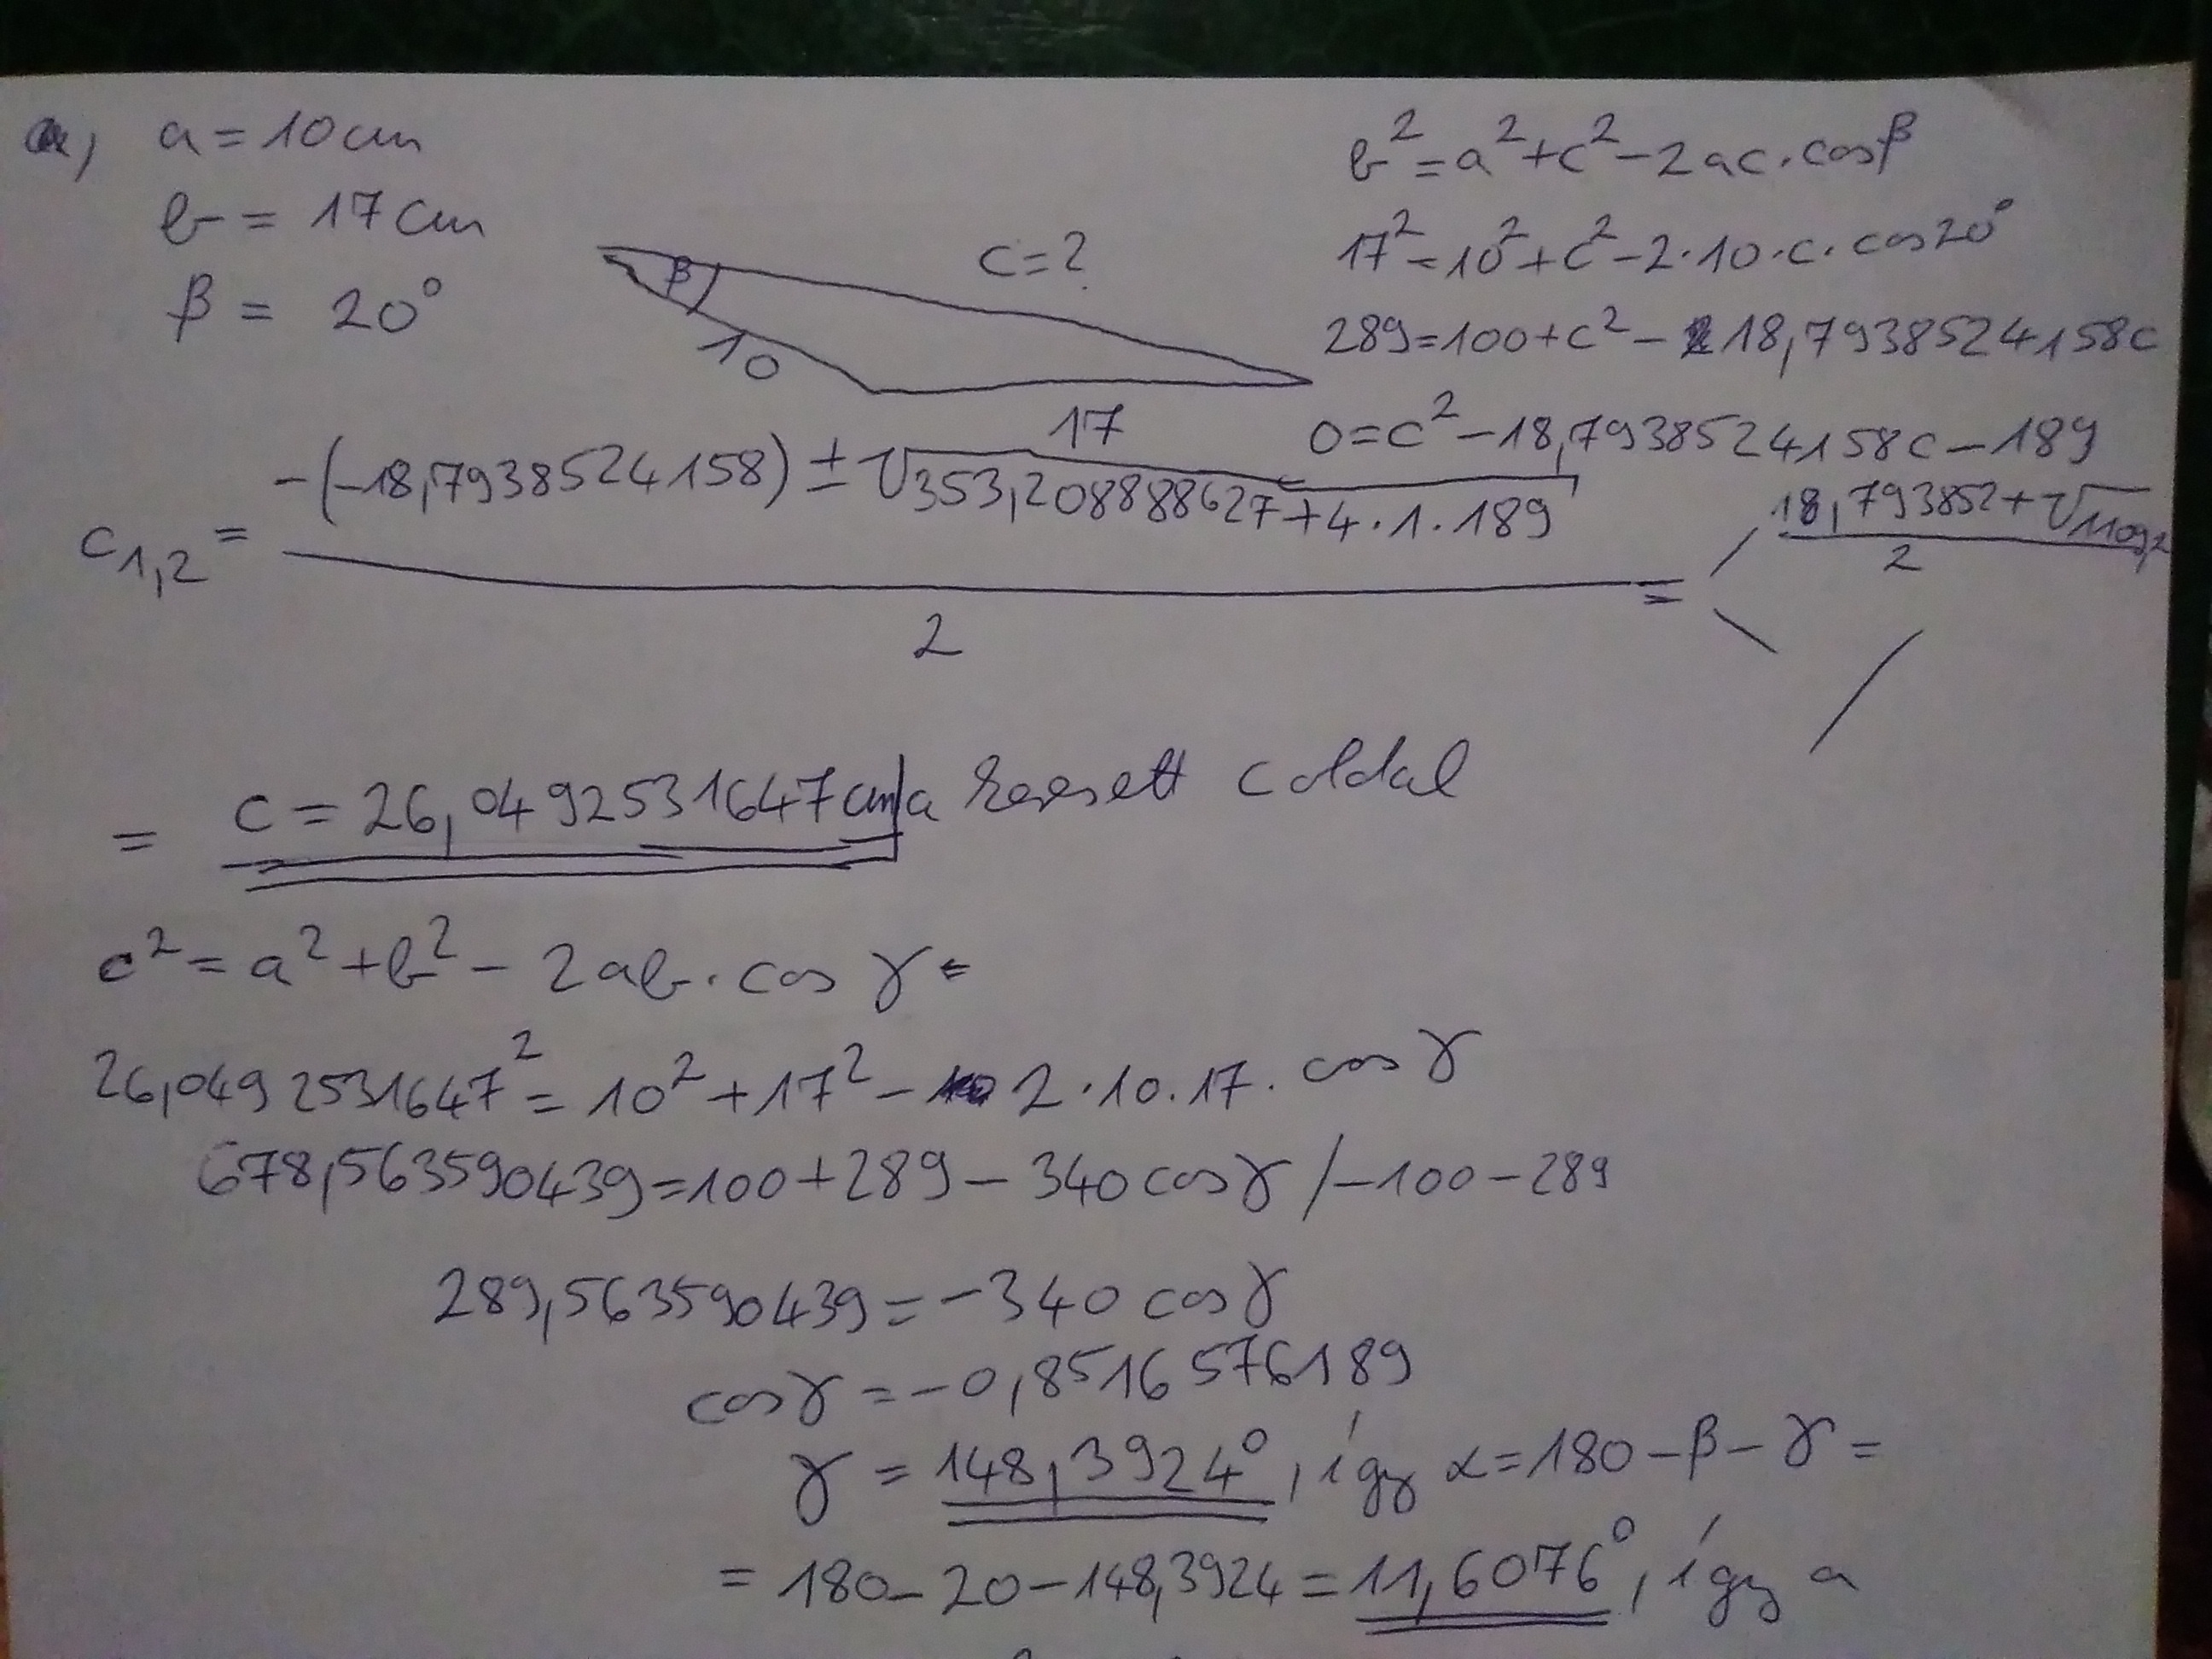 a, a = 10 cm
b = 17 cm
β = 20°
β
10
c = ?
17
b² = a² + c² - 2ac · cos β
17² = 10² + c² - 2 · 10 · c · cos 20°
289 = 100 + c² - 18,7938524158c
0 = c² - 18,7938524158c - 189
c₁,₂ = (-(-18,7938524158) ± √(353,208888627 + 4 · 1 · 189)) / 2 = (18,793852 + √1109,2) / 2
= c = 26,0492531647 cm a keresett c oldal
c² = a² + b² - 2ab · cos γ =
26,0492531647² = 10² + 17² - 2 · 10 · 17 · cos γ
678,563590439 = 100 + 289 - 340 cos γ / -100 - 289
289,563590439 = -340 cos γ
cos γ = -0,8516576189
γ = 148,3924°, így α = 180 - β - γ =
= 180 - 20 - 148,3924 = 11,6076°, így a